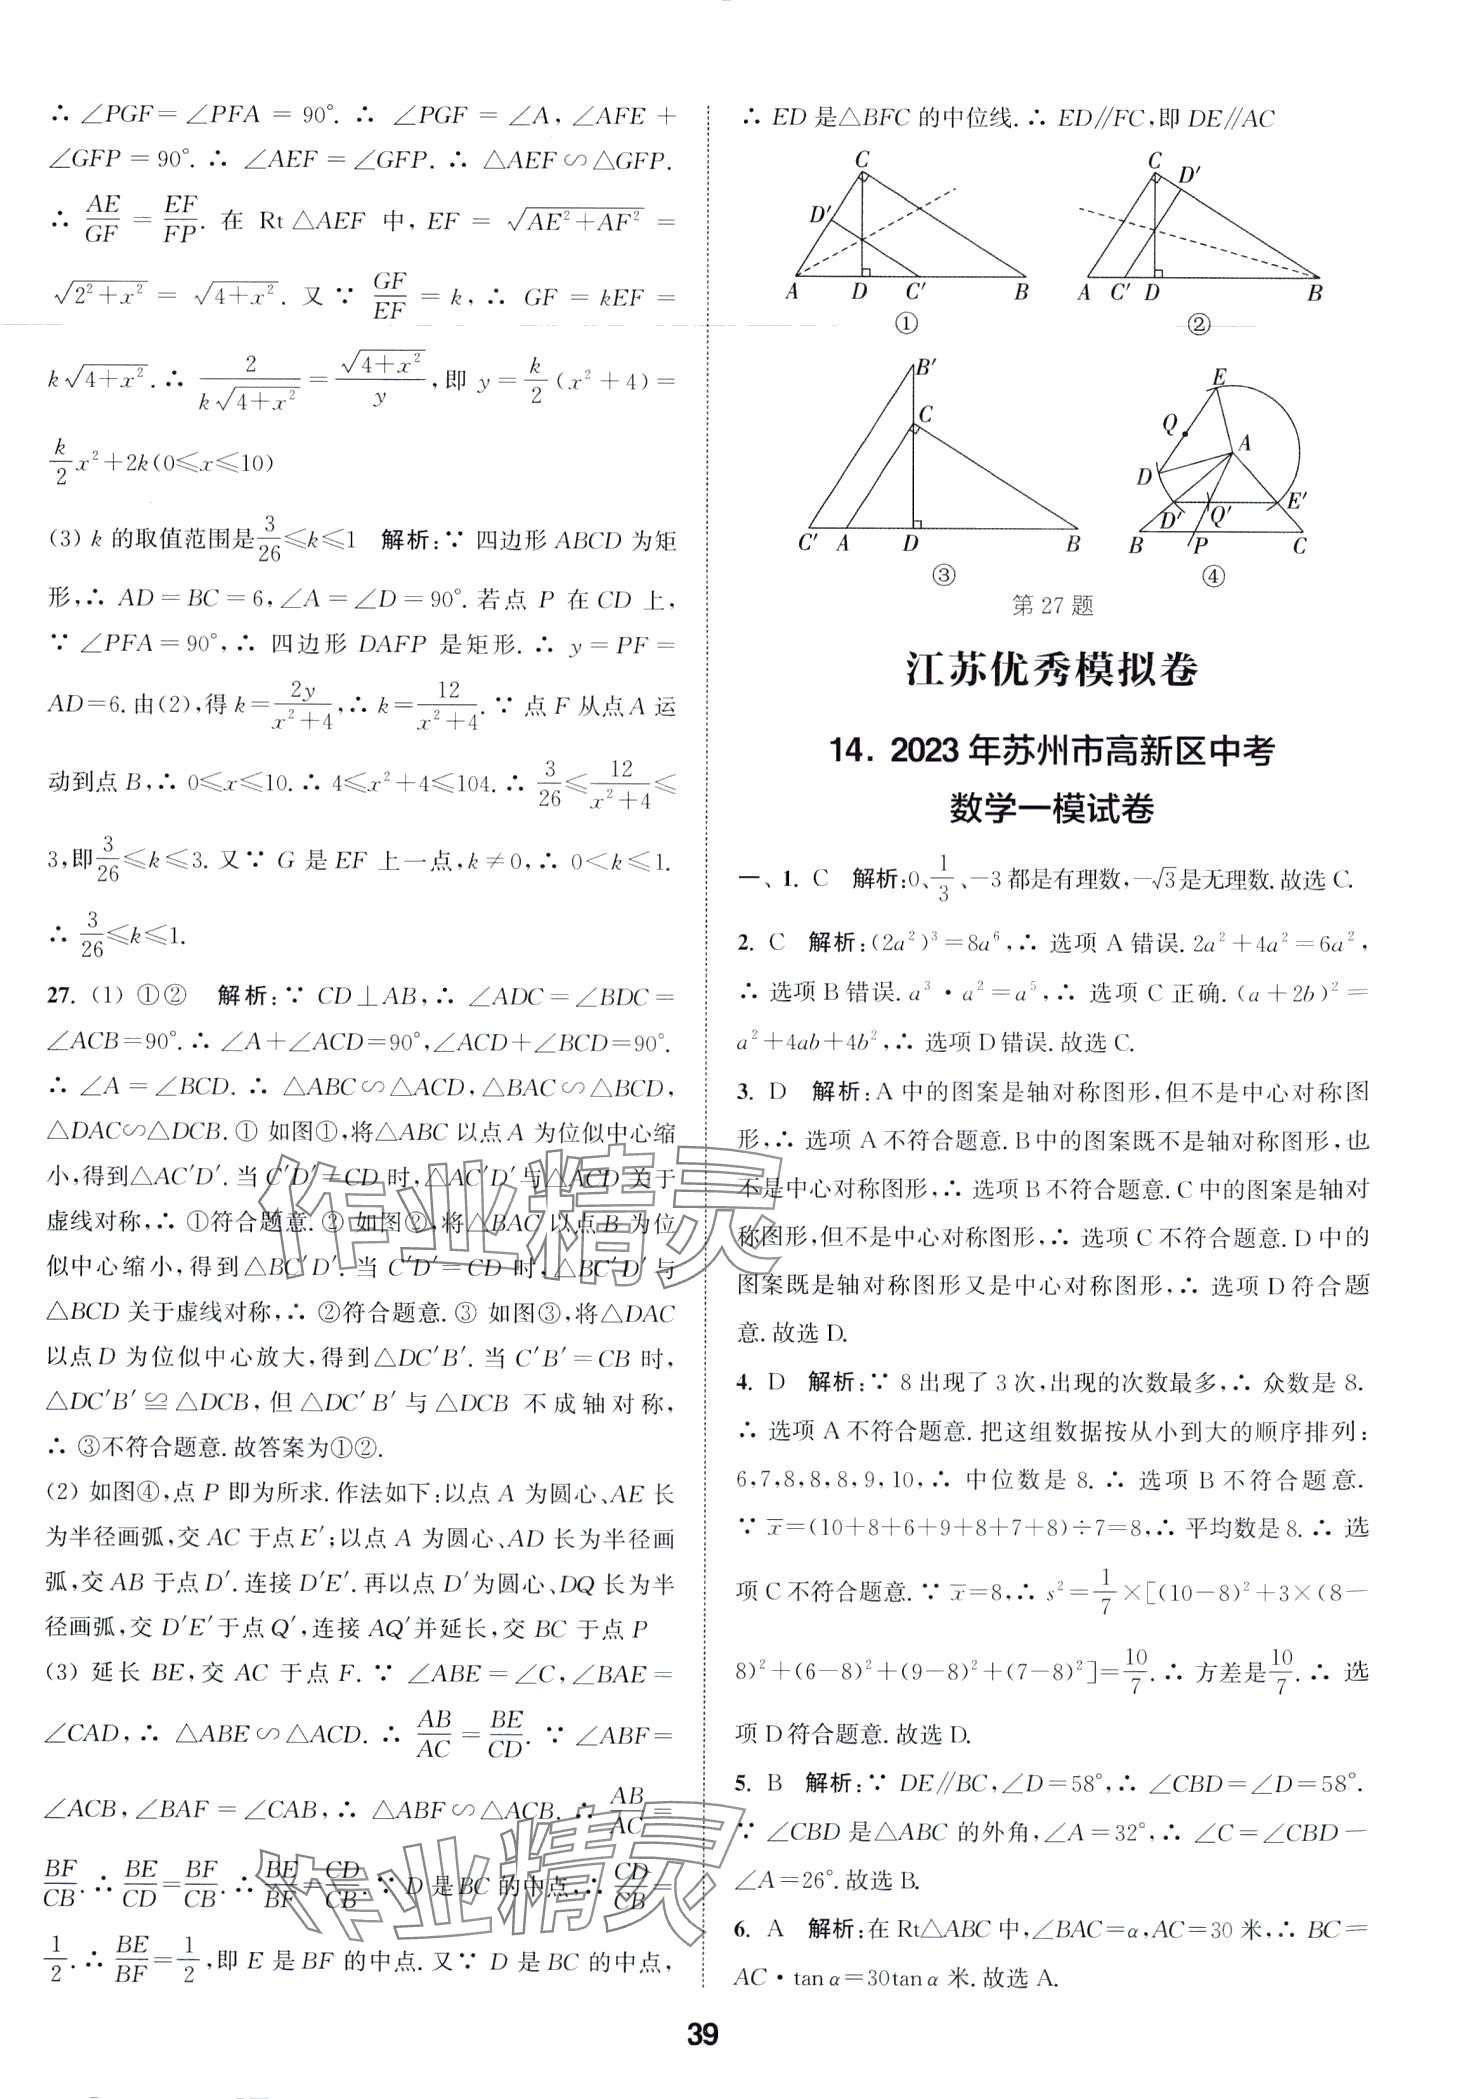 ∴ ∠PGF=∠PFA = 90°. ∴ ∠PGF = ∠A, ∠AFE +
∠GFP = 90°. ∴ ∠AEF = ∠GFP. ∴ △AEF ∽ △GFP.
∴ AE/GF = EF/FP. 在 Rt △AEF 中, EF = √(AE²+AF²) =
√(2²+x²) = √(4+x²). 又 ∵ GF/EF = k, ∴ GF = kEF =
k√(4+x²). ∴ 2/(k√(4+x²)) = √(4+x²)/y, 即 y = k/2 (x²+4) =
k/2 x²+2k(0≤x≤10)
(3) k 的取值范围是 3/26≤k≤1 解析:∵ 四边形 ABCD 为矩
形,∴ AD=BC=6,∠A=∠D=90°. 若点 P 在 CD 上,
∵ ∠PFA=90°,∴ 四边形 DAFP 是矩形. ∴ y=PF=
AD=6. 由(2),得 k=2y/(x²+4),∴ k=12/(x²+4). ∵ 点 F 从点 A 运
动到点 B,∴ 0≤x≤10. ∴ 4≤x²+4≤104. ∴ 3/26≤12/(x²+4)≤
3,即 3/26≤k≤3. 又∵ G 是 EF 上一点,k≠0,∴ 0<k≤1.
∴ 3/26≤k≤1.
27. (1) ①② 解析:∵ CD⊥AB,∴ ∠ADC=∠BDC=
∠ACB=90°. ∴ ∠A+∠ACD=90°,∠ACD+∠BCD=90°.
∴ ∠A=∠BCD. ∴ △ABC∽△ACD,△BAC∽△BCD,
△DAC∽△DCB. ① 如图①,将△ABC 以点 A 为位似中心缩
小,得到△AC′D′. 当 C′D′=CD 时,△AC′D′与△ACD 关于
虚线对称,∴ ①符合题意. ② 如图②,将△BAC 以点 B 为位
似中心缩小,得到△BC′D′. 当 C′D′=CD 时,△BC′D′与
△BCD 关于虚线对称,∴ ②符合题意. ③ 如图③,将△DAC
以点 D 为位似中心放大,得到△DC′B′. 当 C′B′=CB 时,
△DC′B′≌△DCB,但△DC′B′与△DCB 不成轴对称,
∴ ③不符合题意. 故答案为①②.
(2) 如图④,点 P 即为所求. 作法如下:以点 A 为圆心、AE 长
为半径画弧,交 AC 于点 E′;以点 A 为圆心、AD 长为半径画
弧,交 AB 于点 D′. 连接 D′E′. 再以点 D′为圆心、DQ 长为半
径画弧,交 D′E′于点 Q′,连接 AQ′并延长,交 BC 于点 P
(3) 延长 BE,交 AC 于点 F. ∵ ∠ABE=∠C,∠BAE=
∠CAD,∴ △ABE∽△ACD. ∴ AB/AC=BE/CD. ∵ ∠ABF=
∠ACB,∠BAF=∠CAB,∴ △ABF∽△ACB. ∴ AB/AC=
BF/CB. ∴ BE/CD=BF/CB. ∴ BE/BF=CD/CB. ∵ D 是 BC 的中点,∴ CD/CB=
1/2. ∴ BE/BF=1/2,即 E 是 BF 的中点. 又∵ D 是 BC 的中点,
∴ ED 是△BFC 的中位线. ∴ ED∥FC,即 DE∥AC
C
D′
A
D
C′
B
①
C
D′
A
C′
D
B
②
B′
C
C′
A
D
B
③
E
Q
A
D
D′
Q′
E′
B
P
C
④
第 27 题
江苏优秀模拟卷
14. 2023 年苏州市高新区中考
数学一模试卷
一、1. C 解析:0、1/3、−3 都是有理数,−√3是无理数. 故选 C.
2. C 解析:(2a²)³=8a⁶,∴ 选项 A 错误. 2a²+4a²=6a²,
∴ 选项 B 错误. a³·a²=a⁵,∴ 选项 C 正确. (a+2b)²=
a²+4ab+4b²,∴ 选项 D 错误. 故选 C.
3. D 解析:A 中的图案是轴对称图形,但不是中心对称图
形,∴ 选项 A 不符合题意. B 中的图案既不是轴对称图形,也
不是中心对称图形,∴ 选项 B 不符合题意. C 中的图案是轴对
称图形,但不是中心对称图形,∴ 选项 C 不符合题意. D 中的
图案既是轴对称图形又是中心对称图形,∴ 选项 D 符合题
意. 故选 D.
4. D 解析:∵ 8 出现了 3 次,出现的次数最多,∴ 众数是 8.
∴ 选项 A 不符合题意. 把这组数据按从小到大的顺序排列:
6,7,8,8,8,9,10,∴ 中位数是 8. ∴ 选项 B 不符合题意.
∵ x̄=(10+8+6+9+8+7+8)÷7=8,∴ 平均数是 8. ∴ 选
项 C 不符合题意. ∵ x̄=8,∴ s²=1/7×[(10−8)²+3×(8−
8)²+(6−8)²+(9−8)²+(7−8)²]=10/7. ∴ 方差是10/7. ∴ 选
项 D 符合题意. 故选 D.
5. B 解析:∵ DE∥BC,∠D=58°,∴ ∠CBD=∠D=58°.
∵ ∠CBD 是△ABC 的外角,∠A=32°,∴ ∠C=∠CBD−
∠A=26°. 故选 B.
6. A 解析:在 Rt△ABC 中,∠BAC=α,AC=30 米,∴ BC=
AC·tan α=30tan α 米. 故选 A.
作业精灵
作业精灵
39